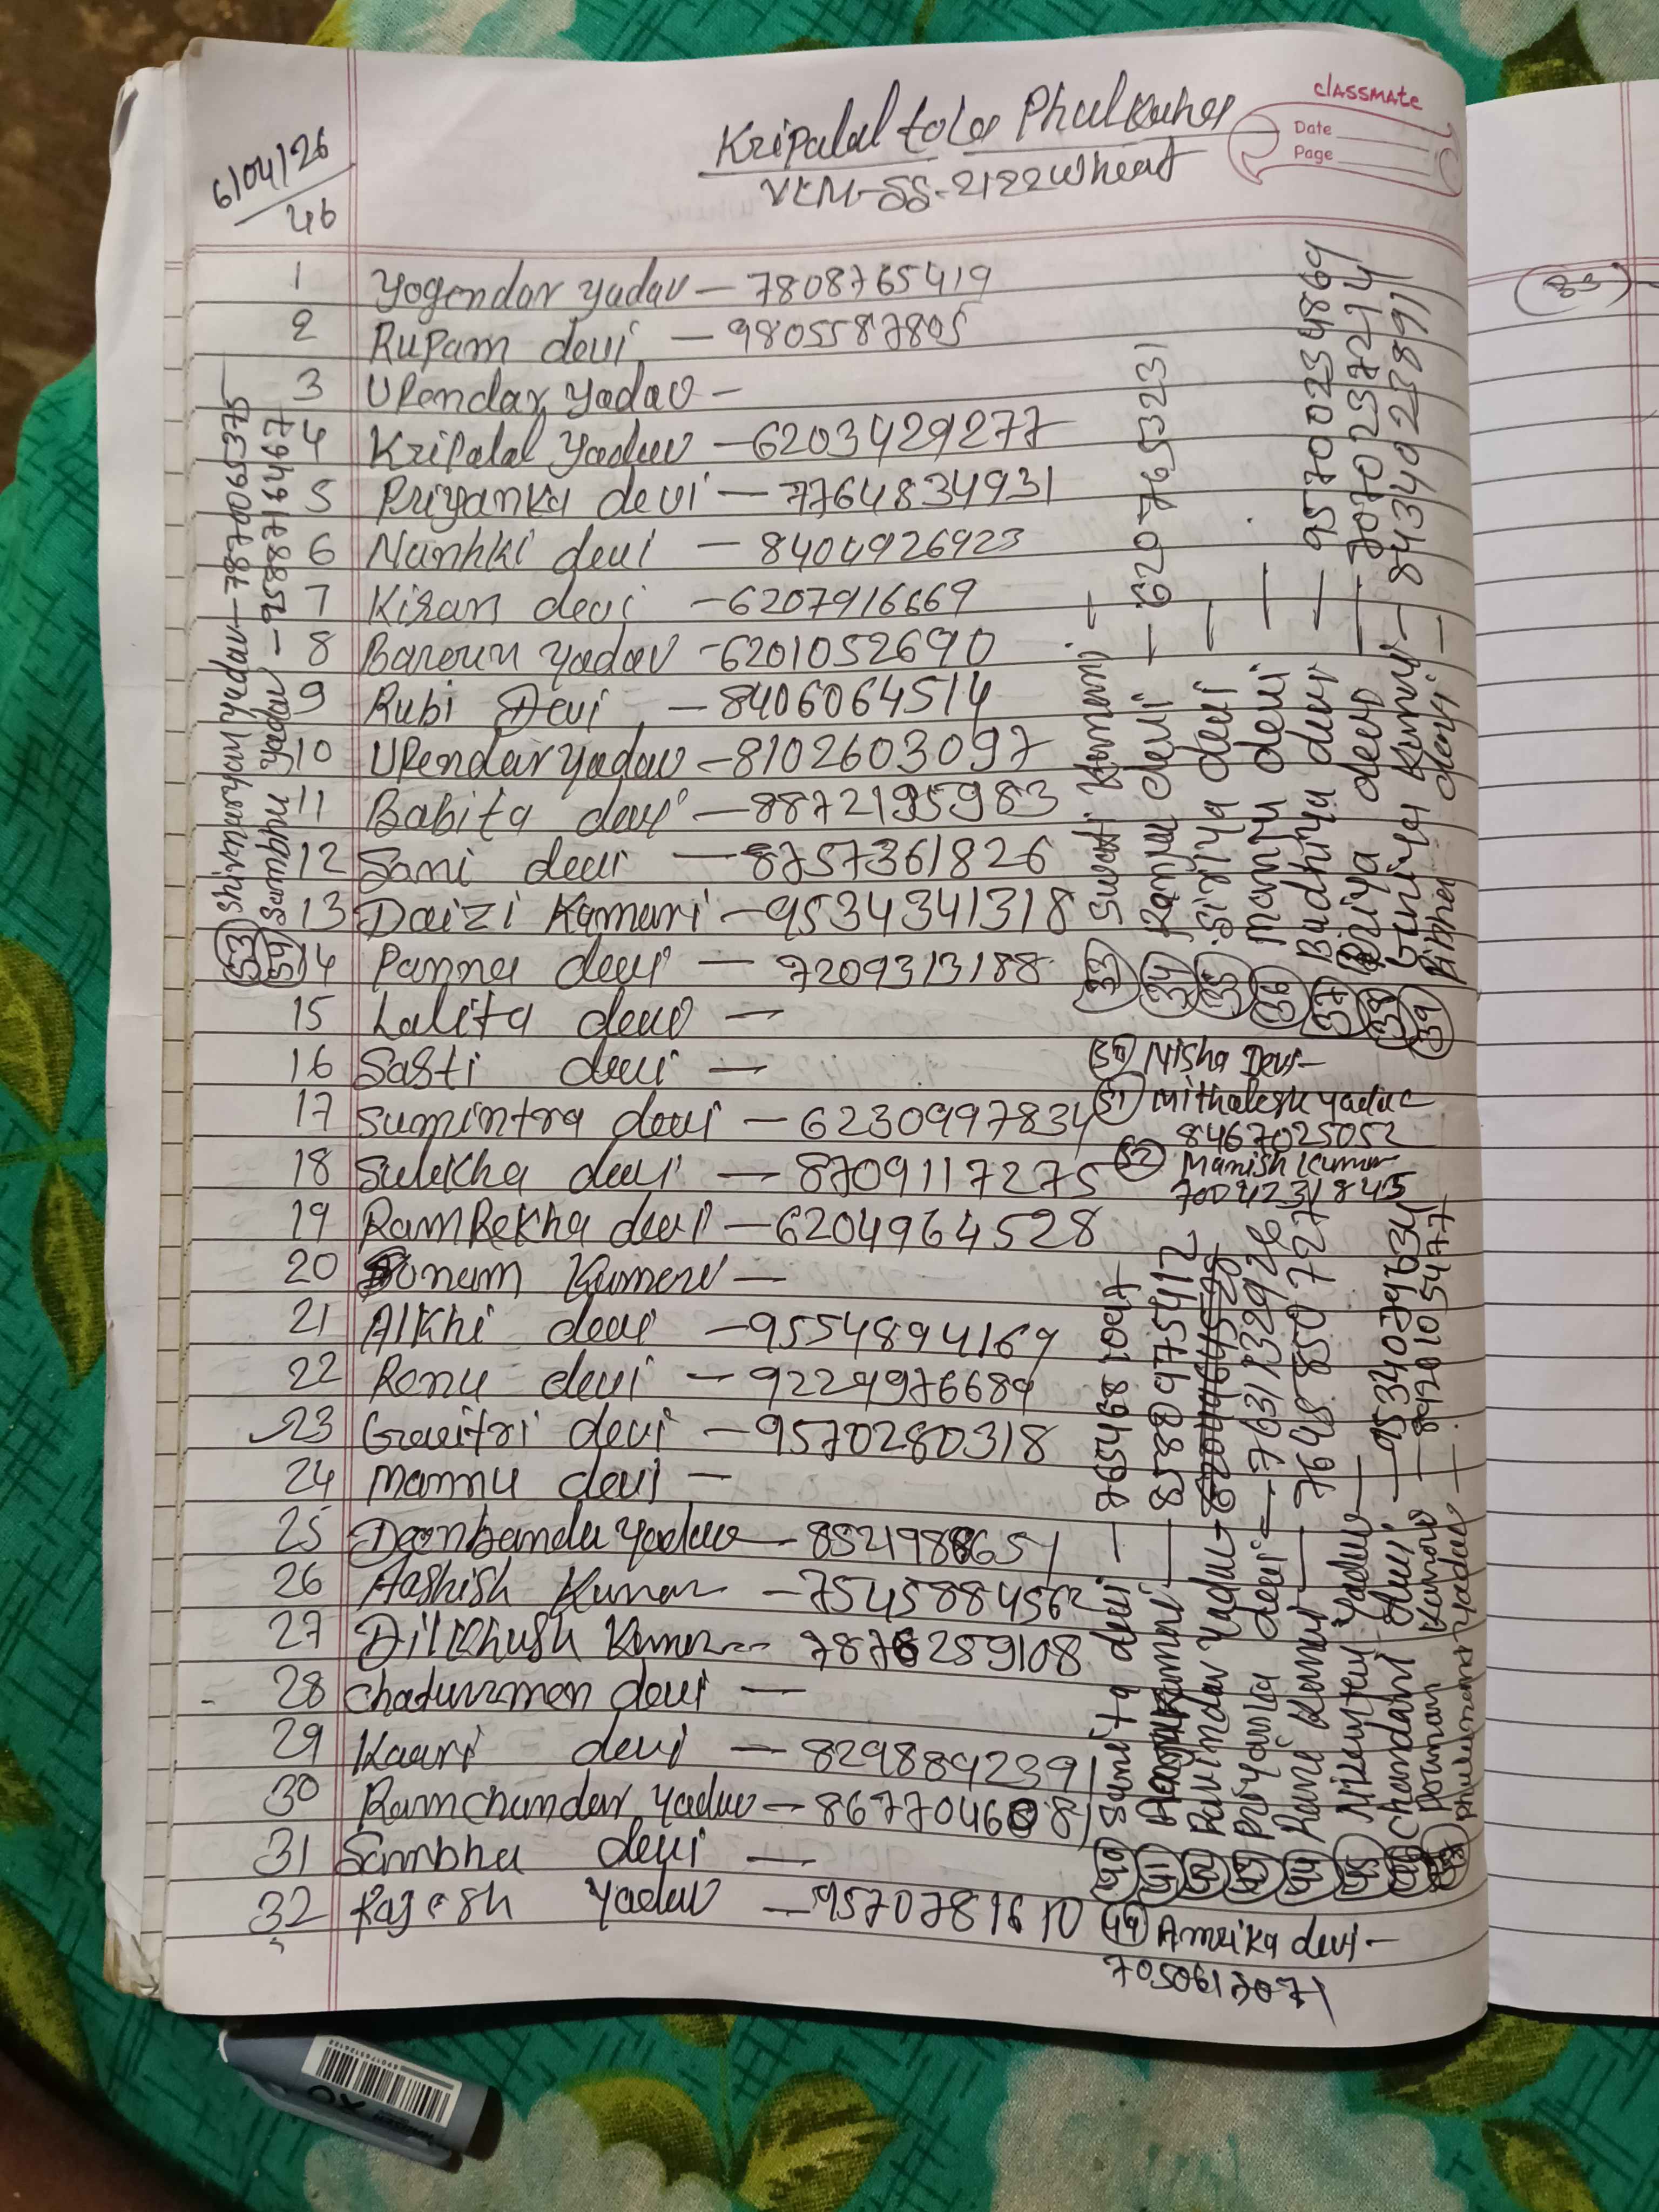 classmate
Date
Page
6/04/26
46
Kripalal tola Phulkaha
VKM-SS-2122 wheat
1 Yogendar yadav - 7808765419
2 Rupam devi - 9805587805
3 Upendar yadav -
4 Kripalal Yadav - 6203429277
5 Priyanka devi - 7764834931
6 Nanhki devi - 8404926923
7 Kiran devi - 6207916669
8 Baroun yadav - 6201052690
9 Rubi Devi - 8406064514
10 Upendar yadav - 8102603097
11 Babita devi - 8872195983
12 Sani devi - 8757361826
13 Daizi Kamari - 9534341318
14 Panna devi - 7209313188
15 Lalita devi -
16 Sasti devi -
17 Sumintra devi - 6230997834
18 Sulekha devi - 8709117275
19 RamRekha devi - 6204964528
20 Sonam Kumari -
21 Alkhi devi - 9554894169
22 Renu devi - 9229976689
23 Gavitri devi - 9570280318
24 mannu devi -
25 Deenbandu Yadav - 8521988651
26 Aashish Kumar - 7545884562
27 Dilkhush Kumar - 7876289108
28 chaturmen devi -
29 Kaari devi - 8298892391
30 Ramchandar yadav - 8677046081
31 Sambha devi -
32 Rajesh yadav - 9570789610
33 Swati Kumari -
34 Ranju devi - 6207653231
35 Sirjiya devi -
36 Mantu devi -
37 Budhiya devi - 9570023486
38 Priya devi - 7070237214
39 Guniya Kumari - 8434092389
Bibha devi -
40 Sunita devi - 7654681047
41 Kumari - 8588975412
42 Ravindar Yadav - 6204964528
43 Priyanka devi - 7631732926
44 Rani Kumari - 7648850727
45 Nikentey Yadav -
46 Chandani devi - 9534079634
Pounam Kumari - 8920105477
48 Phulchand Yadav -
49 Amrika devi -
7050613071
50 Nisha Devi -
51 Mithalesh Yadav
8467025052
52 Manish Kumar
7004231845
53 Shivnarayan yadav - 7870065375
54 Sambhu Yadav - 9588716467
(33)